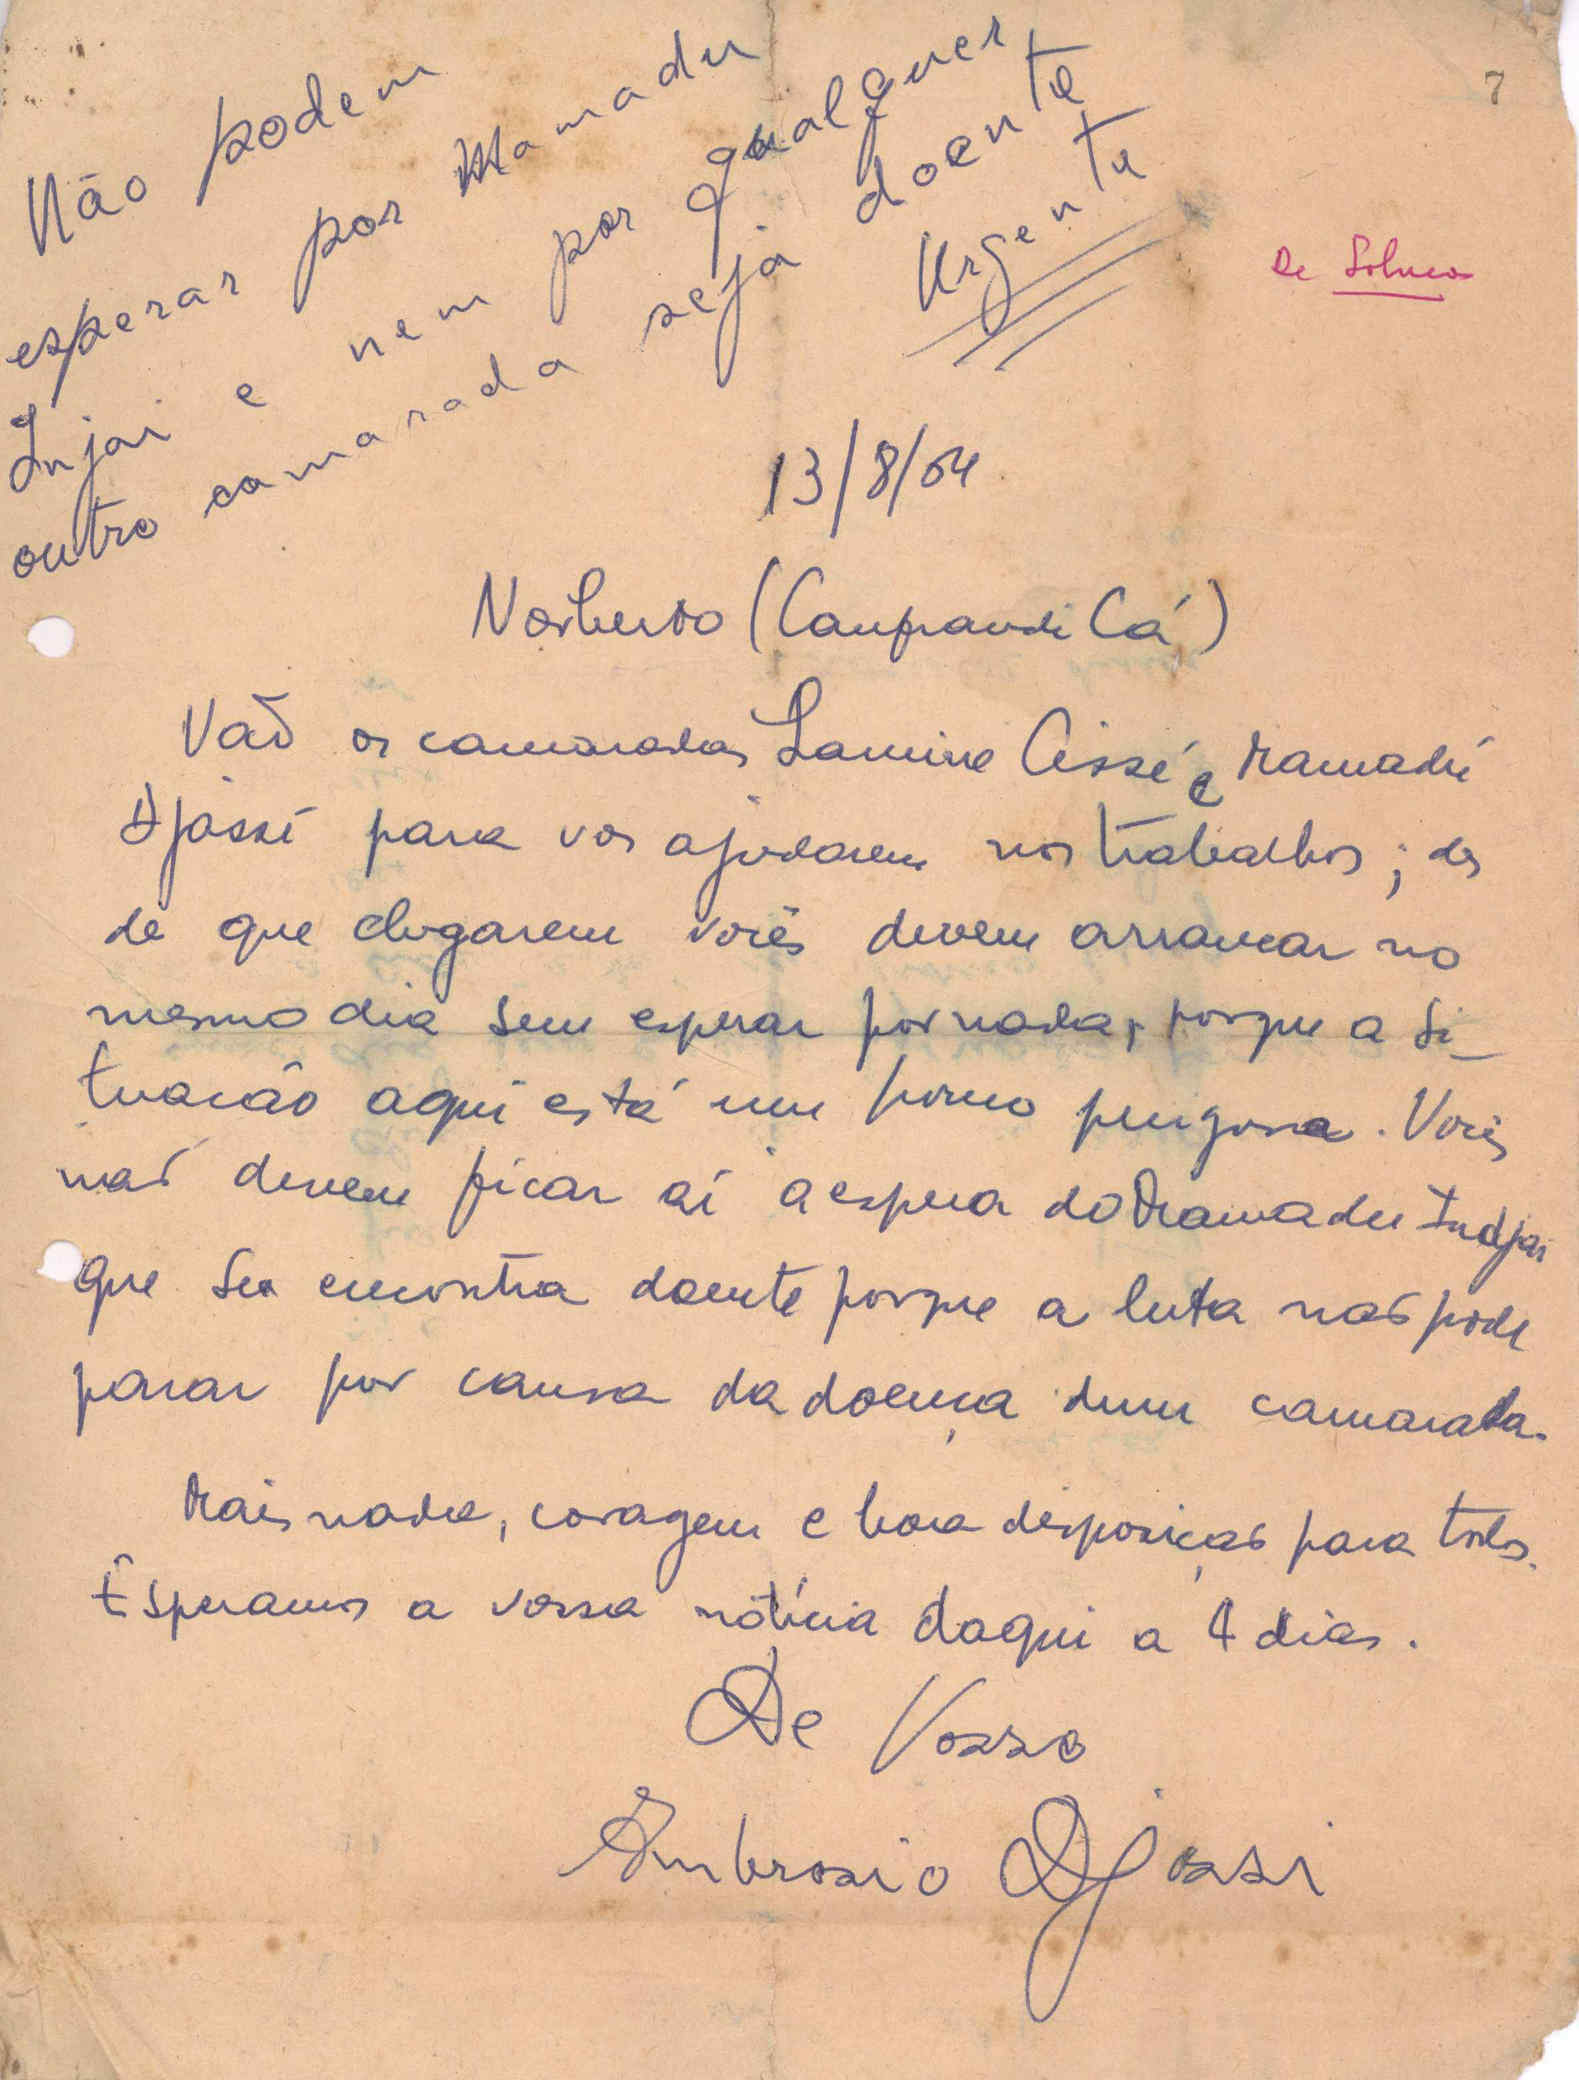 Não podem
esperar por Mamadu
Injai e nem por qualquer
outro camarada seja doente
Urgente
7
De
13/8/64
Norberto (Cauprandi Cá)
Vaõ os camaradas Lamine Cissé e Mamadú
Djassi para vos ajudarem nos trabalhos; des
de que chegarem vocês devem arrancar no
mesmo dia sem esperar por nada, porque a si_
tuacão aqui está um pouco perigosa. Vocês
naõ devem ficar aí à espera do Mamadu Indjai
que se encontra doente porque a luta naõ pode
parar por causa da doença dum camarada.
Mais nada, coragem e boa disposiçaõ para todos.
Esperamos a vossa nóticia daqui a 4 dias.
De Vosso
Ambrosio Djassi